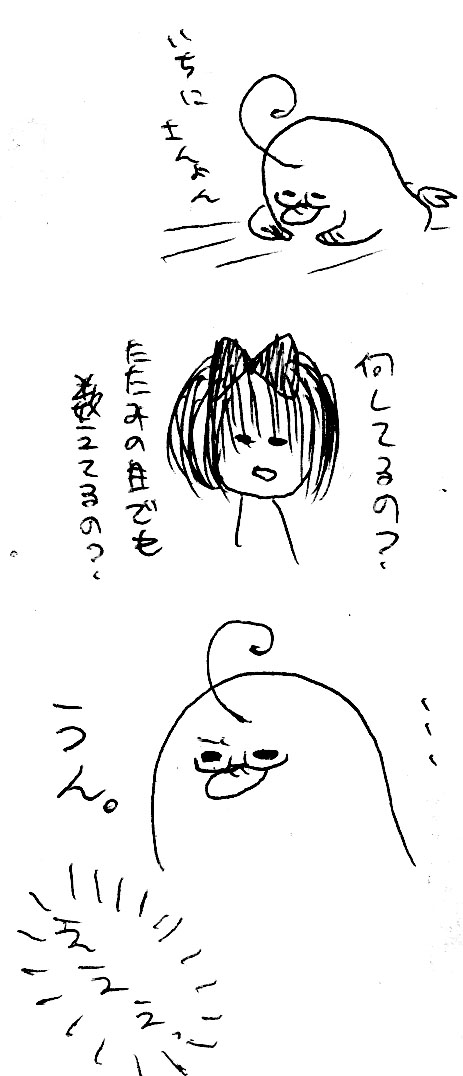 いちに
さんよん
何してるの?
たたみの目でも
数えてるの?
・・・
うん。
えええ